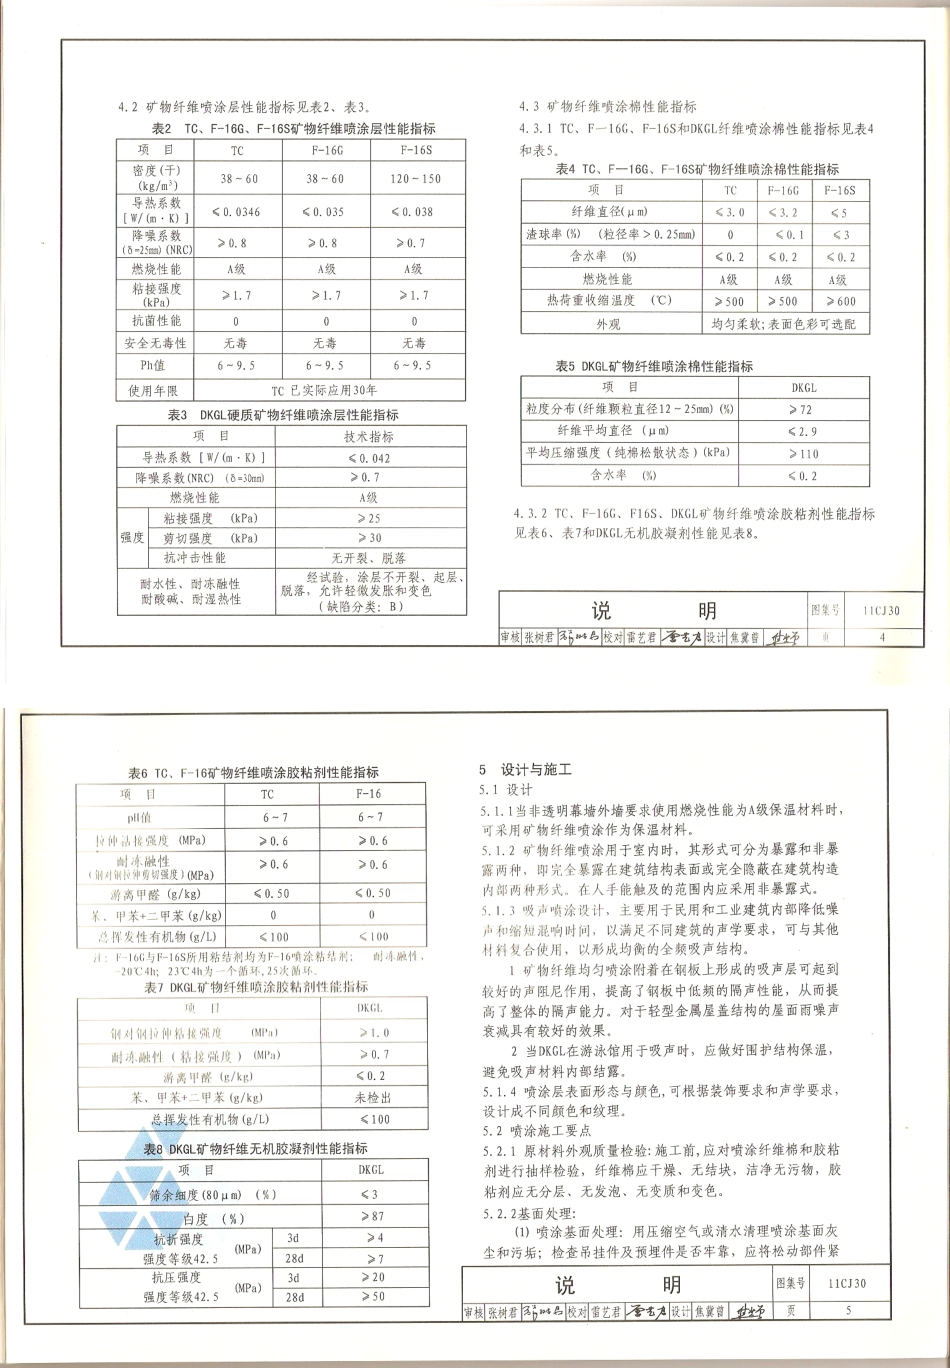 4.2 矿物纤维喷涂层性能指标见表2、表3。
表2 TC、F-16G、F-16S矿物纤维喷涂层性能指标
项 目 TC F-16G F-16S
密度(干)
(kg/m³) 38~60 38~60 120~150
导热系数
[W/(m·K)] ≤0.0346 ≤0.035 ≤0.038
降噪系数
(δ=25mm)(NRC) ≥0.8 ≥0.8 ≥0.7
燃烧性能 A级 A级 A级
粘接强度
(kPa) ≥1.7 ≥1.7 ≥1.7
抗菌性能 0 0 0
安全无毒性 无毒 无毒 无毒
Ph值 6~9.5 6~9.5 6~9.5
使用年限 TC 已实际应用30年
表3 DKGL硬质矿物纤维喷涂层性能指标
项 目 技术指标
导热系数 [W/(m·K)] ≤0.042
降噪系数(NRC) (δ=30mm) ≥0.7
燃烧性能 A级
强度 粘接强度 (kPa) ≥25
剪切强度 (kPa) ≥30
抗冲击性能 无开裂、脱落
耐水性、耐冻融性
耐酸碱、耐湿热性
经试验，涂层不开裂、起层、
脱落，允许轻微发胀和变色
(缺陷分类：B)
4.3 矿物纤维喷涂棉性能指标
4.3.1 TC、F—16G、F-16S和DKGL纤维喷涂棉性能指标见表4
和表5。
表4 TC、F—16G、F-16S矿物纤维喷涂棉性能指标
项 目 TC F-16G F-16S
纤维直径(μm) ≤3.0 ≤3.2 ≤5
渣球率(%) (粒径率＞0.25mm) 0 ≤0.1 ≤3
含水率 (%) ≤0.2 ≤0.2 ≤0.2
燃烧性能 A级 A级 A级
热荷重收缩温度 (℃) ≥500 ≥500 ≥600
外观 均匀柔软;表面色彩可选配
表5 DKGL矿物纤维喷涂棉性能指标
项 目 DKGL
粒度分布(纤维颗粒直径12~25mm)(%) ≥72
纤维平均直径 (μm) ≤2.9
平均压缩强度(纯棉松散状态)(kPa) ≥110
含水率 (%) ≤0.2
4.3.2 TC、F-16G、F16S、DKGL矿物纤维喷涂胶粘剂性能指标
见表6、表7和DKGL无机胶凝剂性能见表8。
说 明 图集号 11CJ30
审核 张树君 校对 雷艺君 设计 焦冀曾 页 4
表6 TC、F-16矿物纤维喷涂胶粘剂性能指标
项 目 TC F-16
pH值 6~7 6~7
拉伸粘接强度 (MPa) ≥0.6 ≥0.6
耐冻融性
(钢对钢拉伸剪切强度)(MPa) ≥0.6 ≥0.6
游离甲醛 (g/kg) ≤0.50 ≤0.50
苯、甲苯+二甲苯(g/kg) 0 0
总挥发性有机物(g/L) ≤100 ≤100
注：F-16G与F-16S所用粘结剂均为F-16喷涂粘结剂； 耐冻融性，
-20℃4h；23℃4h为一个循环,25次循环。
表7 DKGL矿物纤维喷涂胶粘剂性能指标
项 目 DKGL
钢对钢拉伸粘接强度 (MPa) ≥1.0
耐冻融性(粘接强度) (MPa) ≥0.7
游离甲醛 (g/kg) ≤0.2
苯、甲苯+二甲苯(g/kg) 未检出
总挥发性有机物(g/L) ≤100
表8 DKGL矿物纤维无机胶凝剂性能指标
项 目 DKGL
筛余细度(80μm) (%) ≤3
白度 (%) ≥87
抗折强度
强度等级42.5 (MPa) 3d ≥4
28d ≥7
抗压强度
强度等级42.5 (MPa) 3d ≥20
28d ≥50
5 设计与施工
5.1 设计
5.1.1当非透明幕墙外墙要求使用燃烧性能为A级保温材料时，
可采用矿物纤维喷涂作为保温材料。
5.1.2 矿物纤维喷涂用于室内时，其形式可分为暴露和非暴
露两种，即完全暴露在建筑结构表面或完全隐蔽在建筑构造
内部两种形式。在人手能触及的范围内应采用非暴露式。
5.1.3 吸声喷涂设计，主要用于民用和工业建筑内部降低噪
声和缩短混响时间，以满足不同建筑的声学要求，可与其他
材料复合使用，以形成均衡的全频吸声结构。
1 矿物纤维均匀喷涂附着在钢板上形成的吸声层可起到
较好的声阻尼作用，提高了钢板中低频的隔声性能，从而提
高了整体的隔声能力。对于轻型金属屋盖结构的屋面雨噪声
衰减具有较好的效果。
2 当DKGL在游泳馆用于吸声时，应做好围护结构保温，
避免吸声材料内部结露。
5.1.4 喷涂层表面形态与颜色,可根据装饰要求和声学要求，
设计成不同颜色和纹理。
5.2 喷涂施工要点
5.2.1 原材料外观质量检验:施工前,应对喷涂纤维棉和胶粘
剂进行抽样检验，纤维棉应干燥、无结块，洁净无污物，胶
粘剂应无分层、无发泡、无变质和变色。
5.2.2基面处理:
(1) 喷涂基面处理：用压缩空气或清水清理喷涂基面灰
尘和污垢；检查吊挂件及预埋件是否牢靠，应将松动部件紧
说 明 图集号 11CJ30
审核 张树君 校对 雷艺君 设计 焦冀曾 页 5